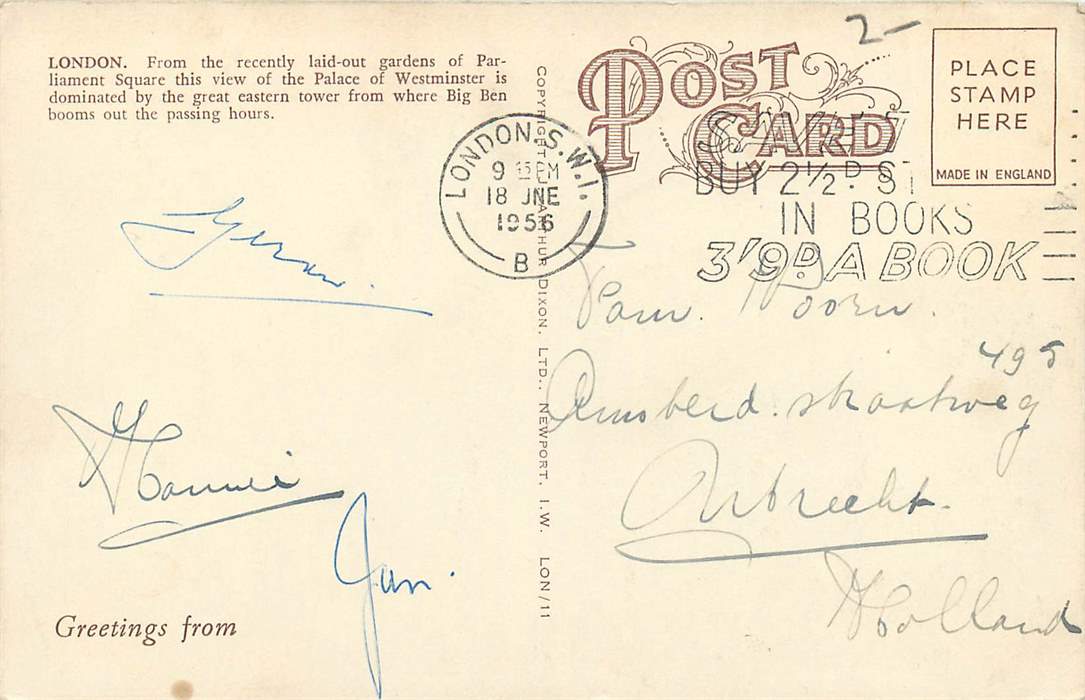 LONDON. From the recently laid-out gardens of Par-
liament Square this view of the Palace of Westminster is
dominated by the great eastern tower from where Big Ben
booms out the passing hours.
POST
CARD
2-
PLACE
STAMP
HERE
MADE IN ENGLAND
LONDON. S.W.1.
9 15 PM
18 JNE
1956
B
BUY 2½D. ST
IN BOOKS
3'9D. A BOOK
COPYRIGHT J. ARTHUR DIXON. LTD., NEWPORT. I.W. LON/11
Fam. Hoorn.
495
Amsterd. straatweg
Utrecht.
Holland
Hannie
Jan.
Greetings from